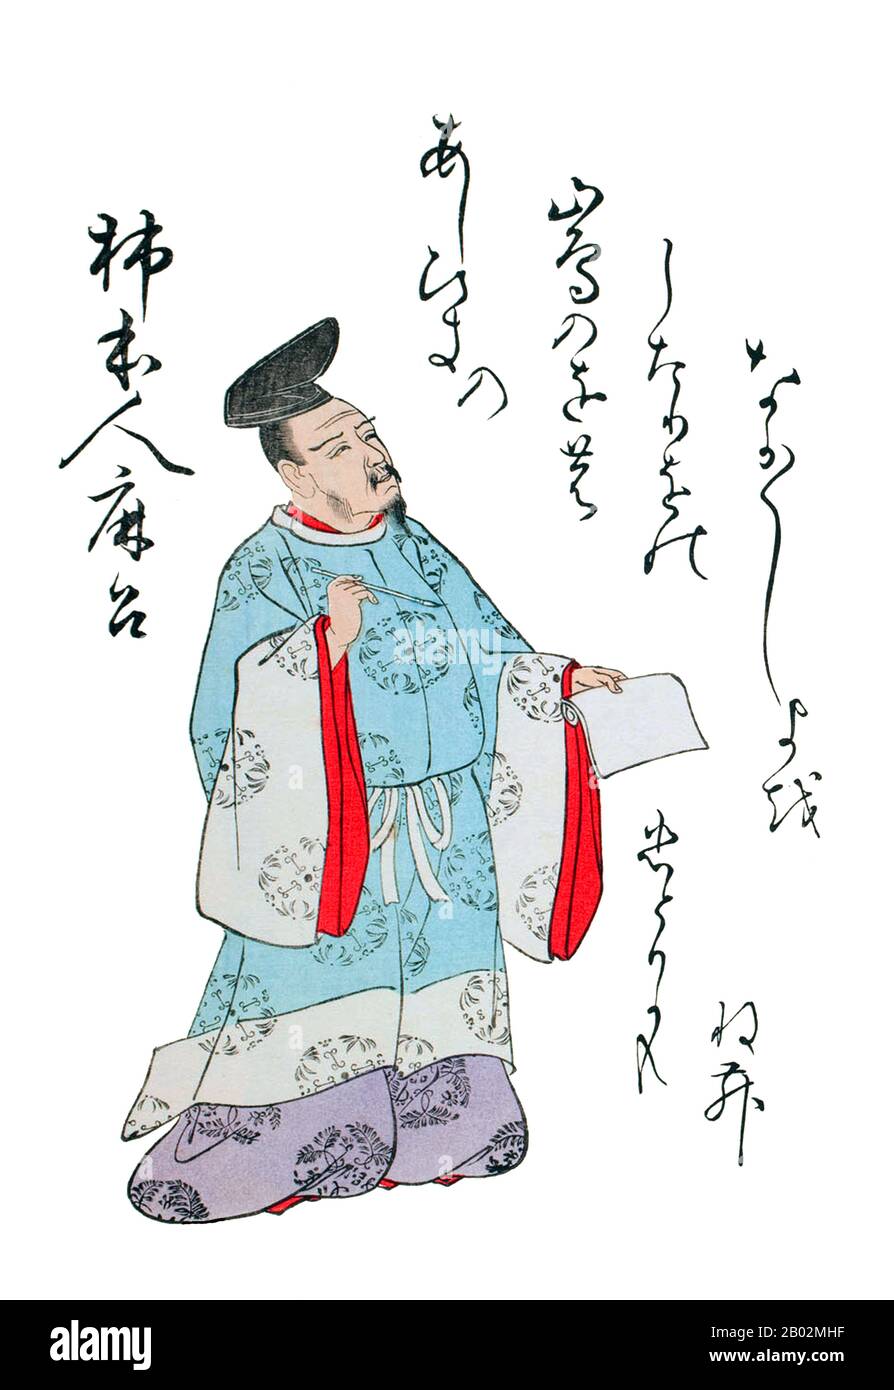 柿本人麻呂
あしひきの
山鳥のをの
したりをの
なか〱し
よを
ひとりかも
ねむ
alamy
Image ID: 2B02MHF
www.alamy.com